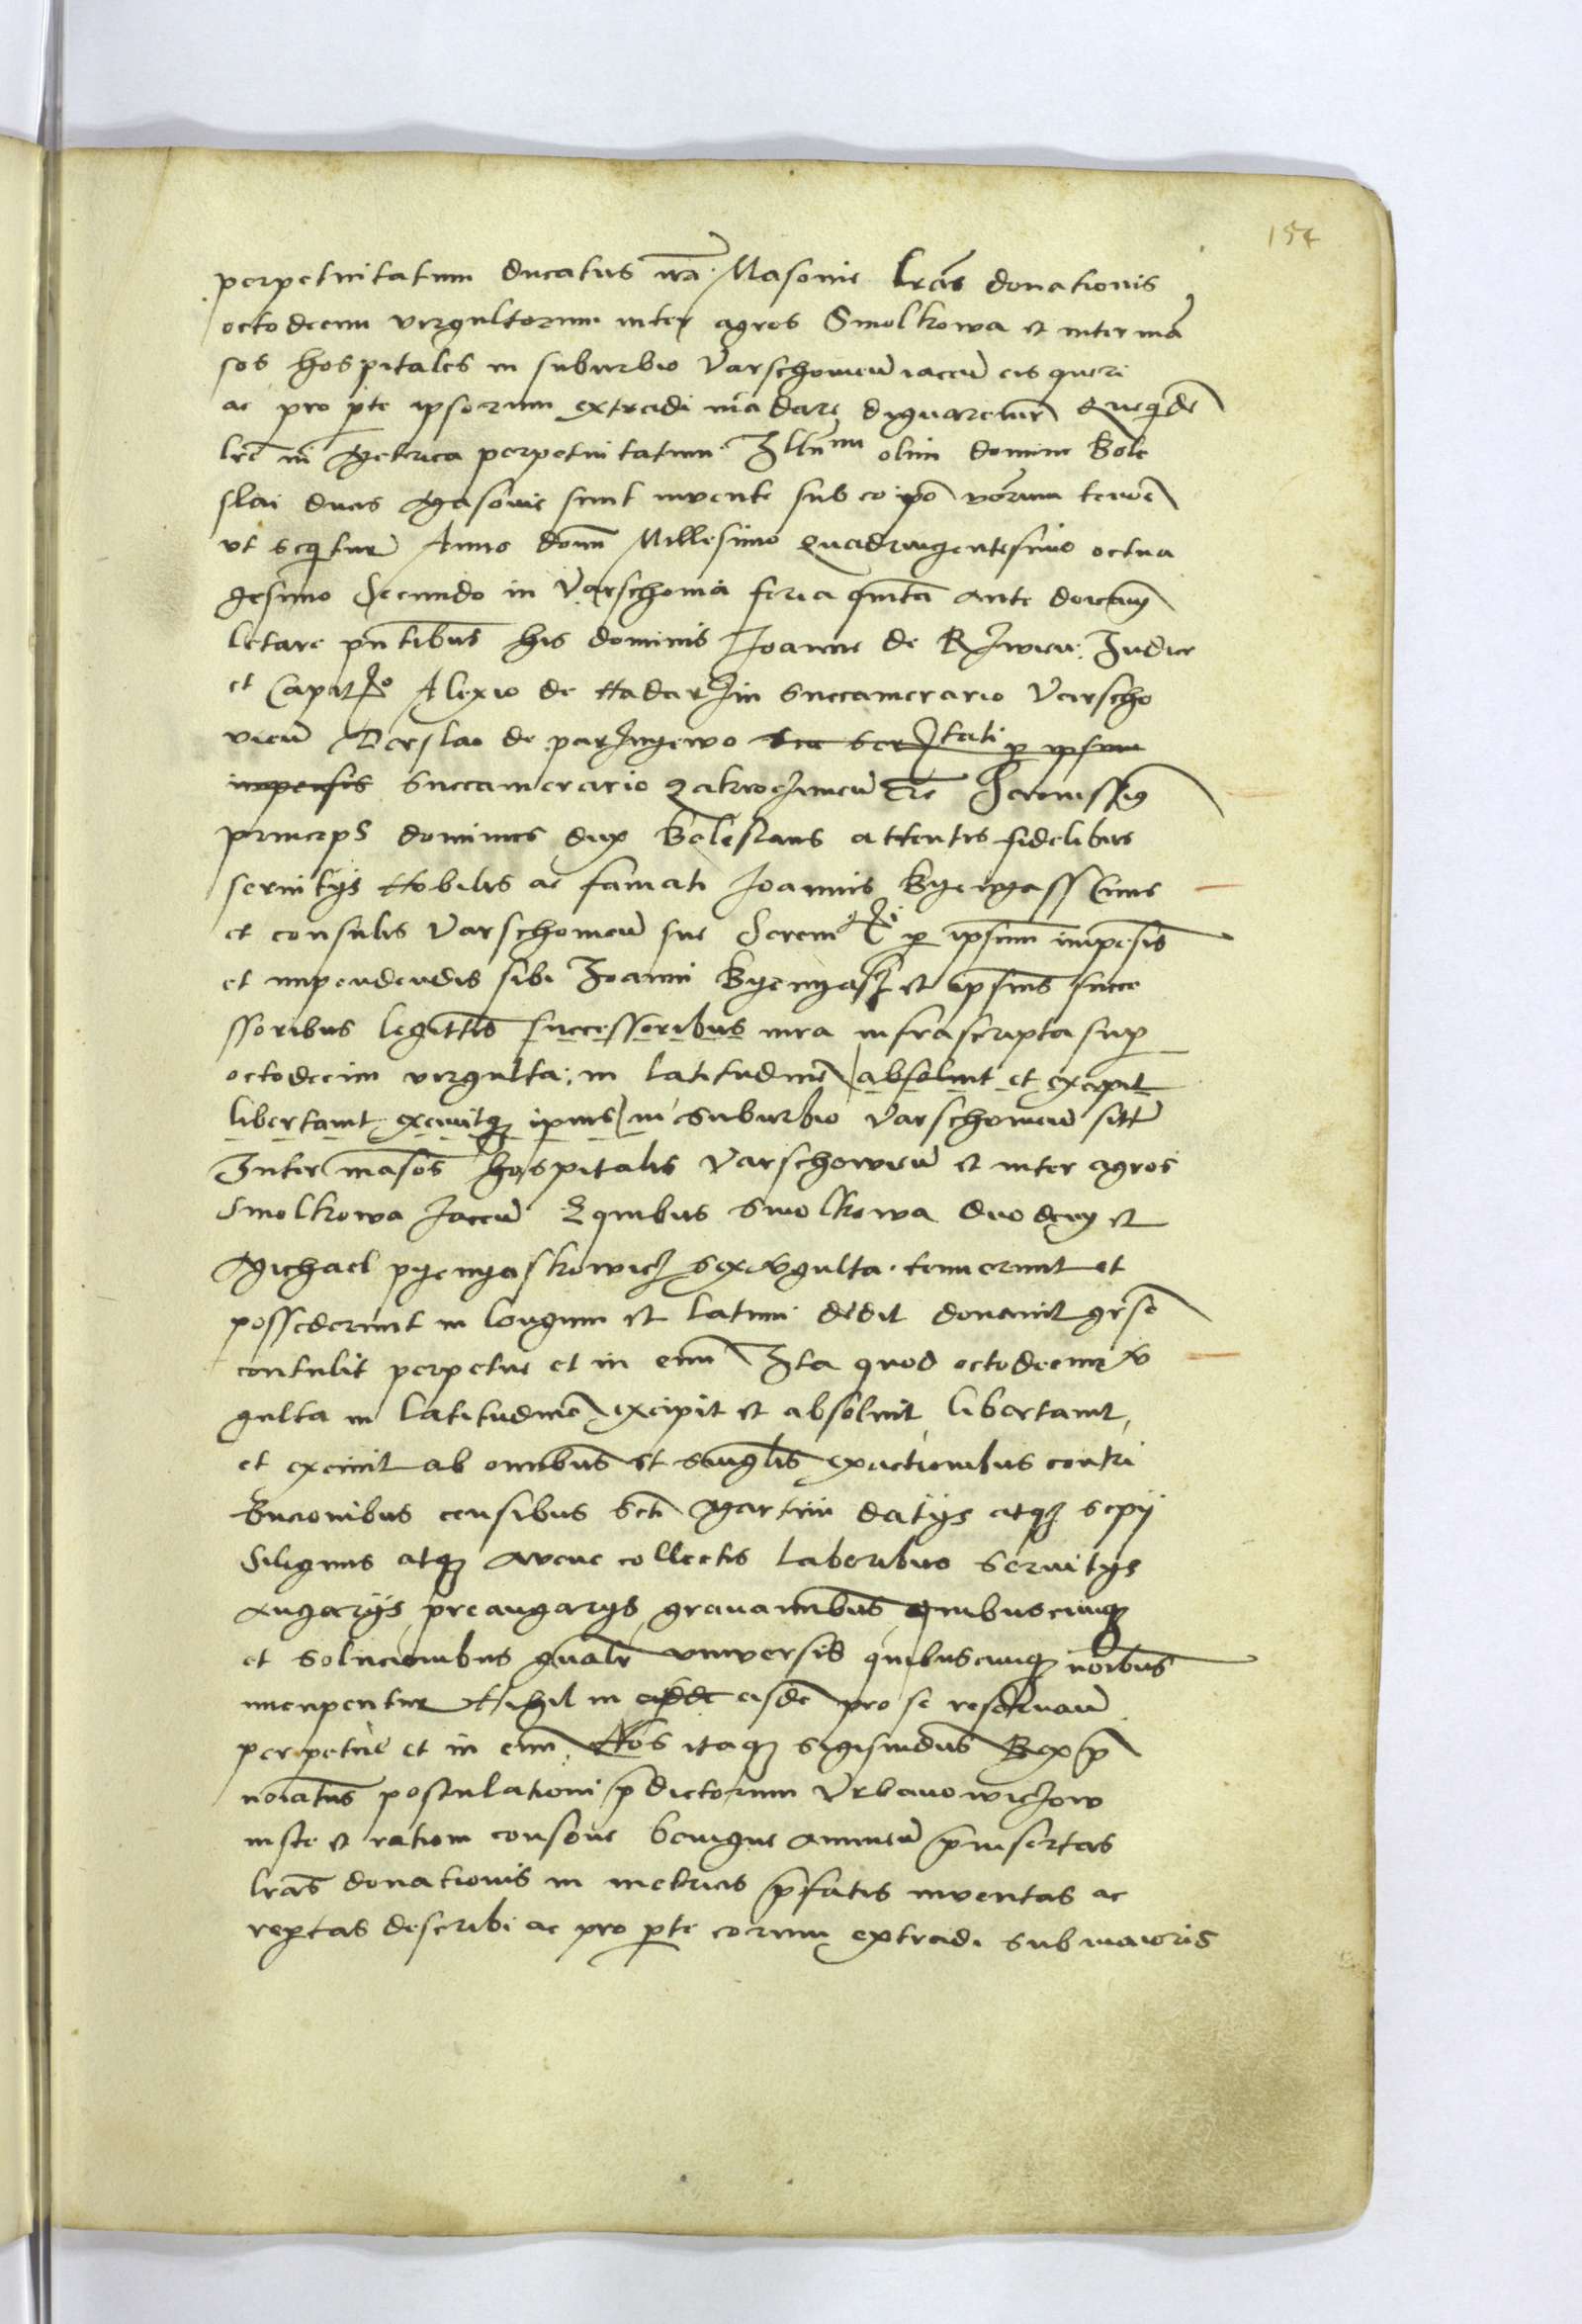 154
perpetuitatum ducatus nrã Masovie lrãs donationis
octodecim virgultorum inter agros Smolkowa et inter mã
sos hospitales in suburbio Varschovieñ iaceñ eis queri
ac pro pte ipsorum extradi mãdare dignaremur Queqidẽ
lrẽ in Metrica perpetuitatum Illmi olim domini Bole
slai ducis Masovie sunt invente sub eo ipõ verorum tenorẽ
ut sequitur Anno domi Millesimo Quadringentesimo octua
gesimo Secundo in Varschovia feria quinta ante domcam
letare pntibus his dominis Joanne de Rziwien Judice
et Capitzo Alexio de Nadarzin Succamerario Varscho
vieñ Derslao de parzngewo sue serztati p ipsum
impensis Succamerario Zakroczimeñ etc Serenissig
princeps dominus dux Boleslaus attentis fidelibus
servitijs Nobilis ac famati Joannis Byenyass Civis
et consulis Varschovieñ sue Serenitzti p ipsum impẽsis
et impendendis sibi Joanni Byenyasz et ipsius succe
ssoribus legittis successoribus iura infrascripta sup
octodecim virgulta in latitudinẽ absoluit et excipit
libertauit exeuitqz ipius in suburbio Varschovieñ sitt
Inter mãsos hospitalis Varschovieñ et inter agros
Smolkowa Jaceñ Ex quibus Smolkowa duodecim et
Michael pyenyaskowicz sex virgulta tenuerunt et
possederunt in longum et latum dedit donavit grse
contulit perpetue et in evũ Ita quod octodecim vr
gulta in latitudinẽ excipit et absoluit libertauit
et exemit ab omnibus et singlis exactionibus contri
bucionibus censibus Scti Martini datijs atqz sepij
siliginis atqz avene collectis laboribus servitijs
Angarijs preangarijs gravaminibus quibuscunqz
et solucionibus gnalr universis quibuscunqz noibus
nuncupentur Nihil in eisdẽ pro se reservañ
perpetue et in evũ Nos itaqz Sigismũdus Rex p
noiatus postulationi pdictorum Urbanowiczow
iuste et rationi consone benigne annueñ pinsertas
lrãs donationis in metricis pfatis inventas ac
reptas describi ac pro pte eorum extradi sub maioris